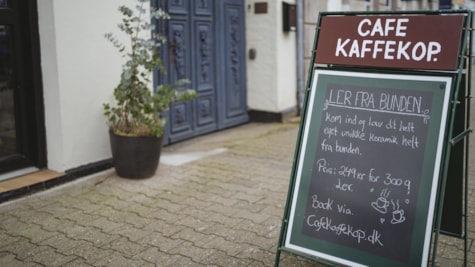 CAFE
KAFFEKOP.
LER FRA BUNDEN.
Kom ind og lav dit helt
eget unikke keramik helt
fra bunden.
Pris: 249 kr for 300 g
Ler.
Book via.
Cafekaffekop.dk